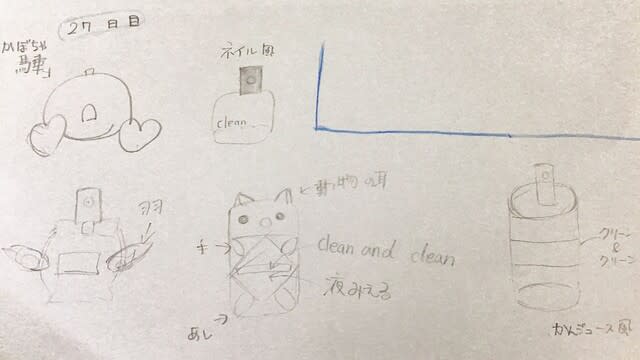 27日目
かぼちゃ
馬車
ネイル風
clean
羽
動物の耳
手
clean and clean
夜みえる
あし
クリーン
&
クリーン
かんジュース風